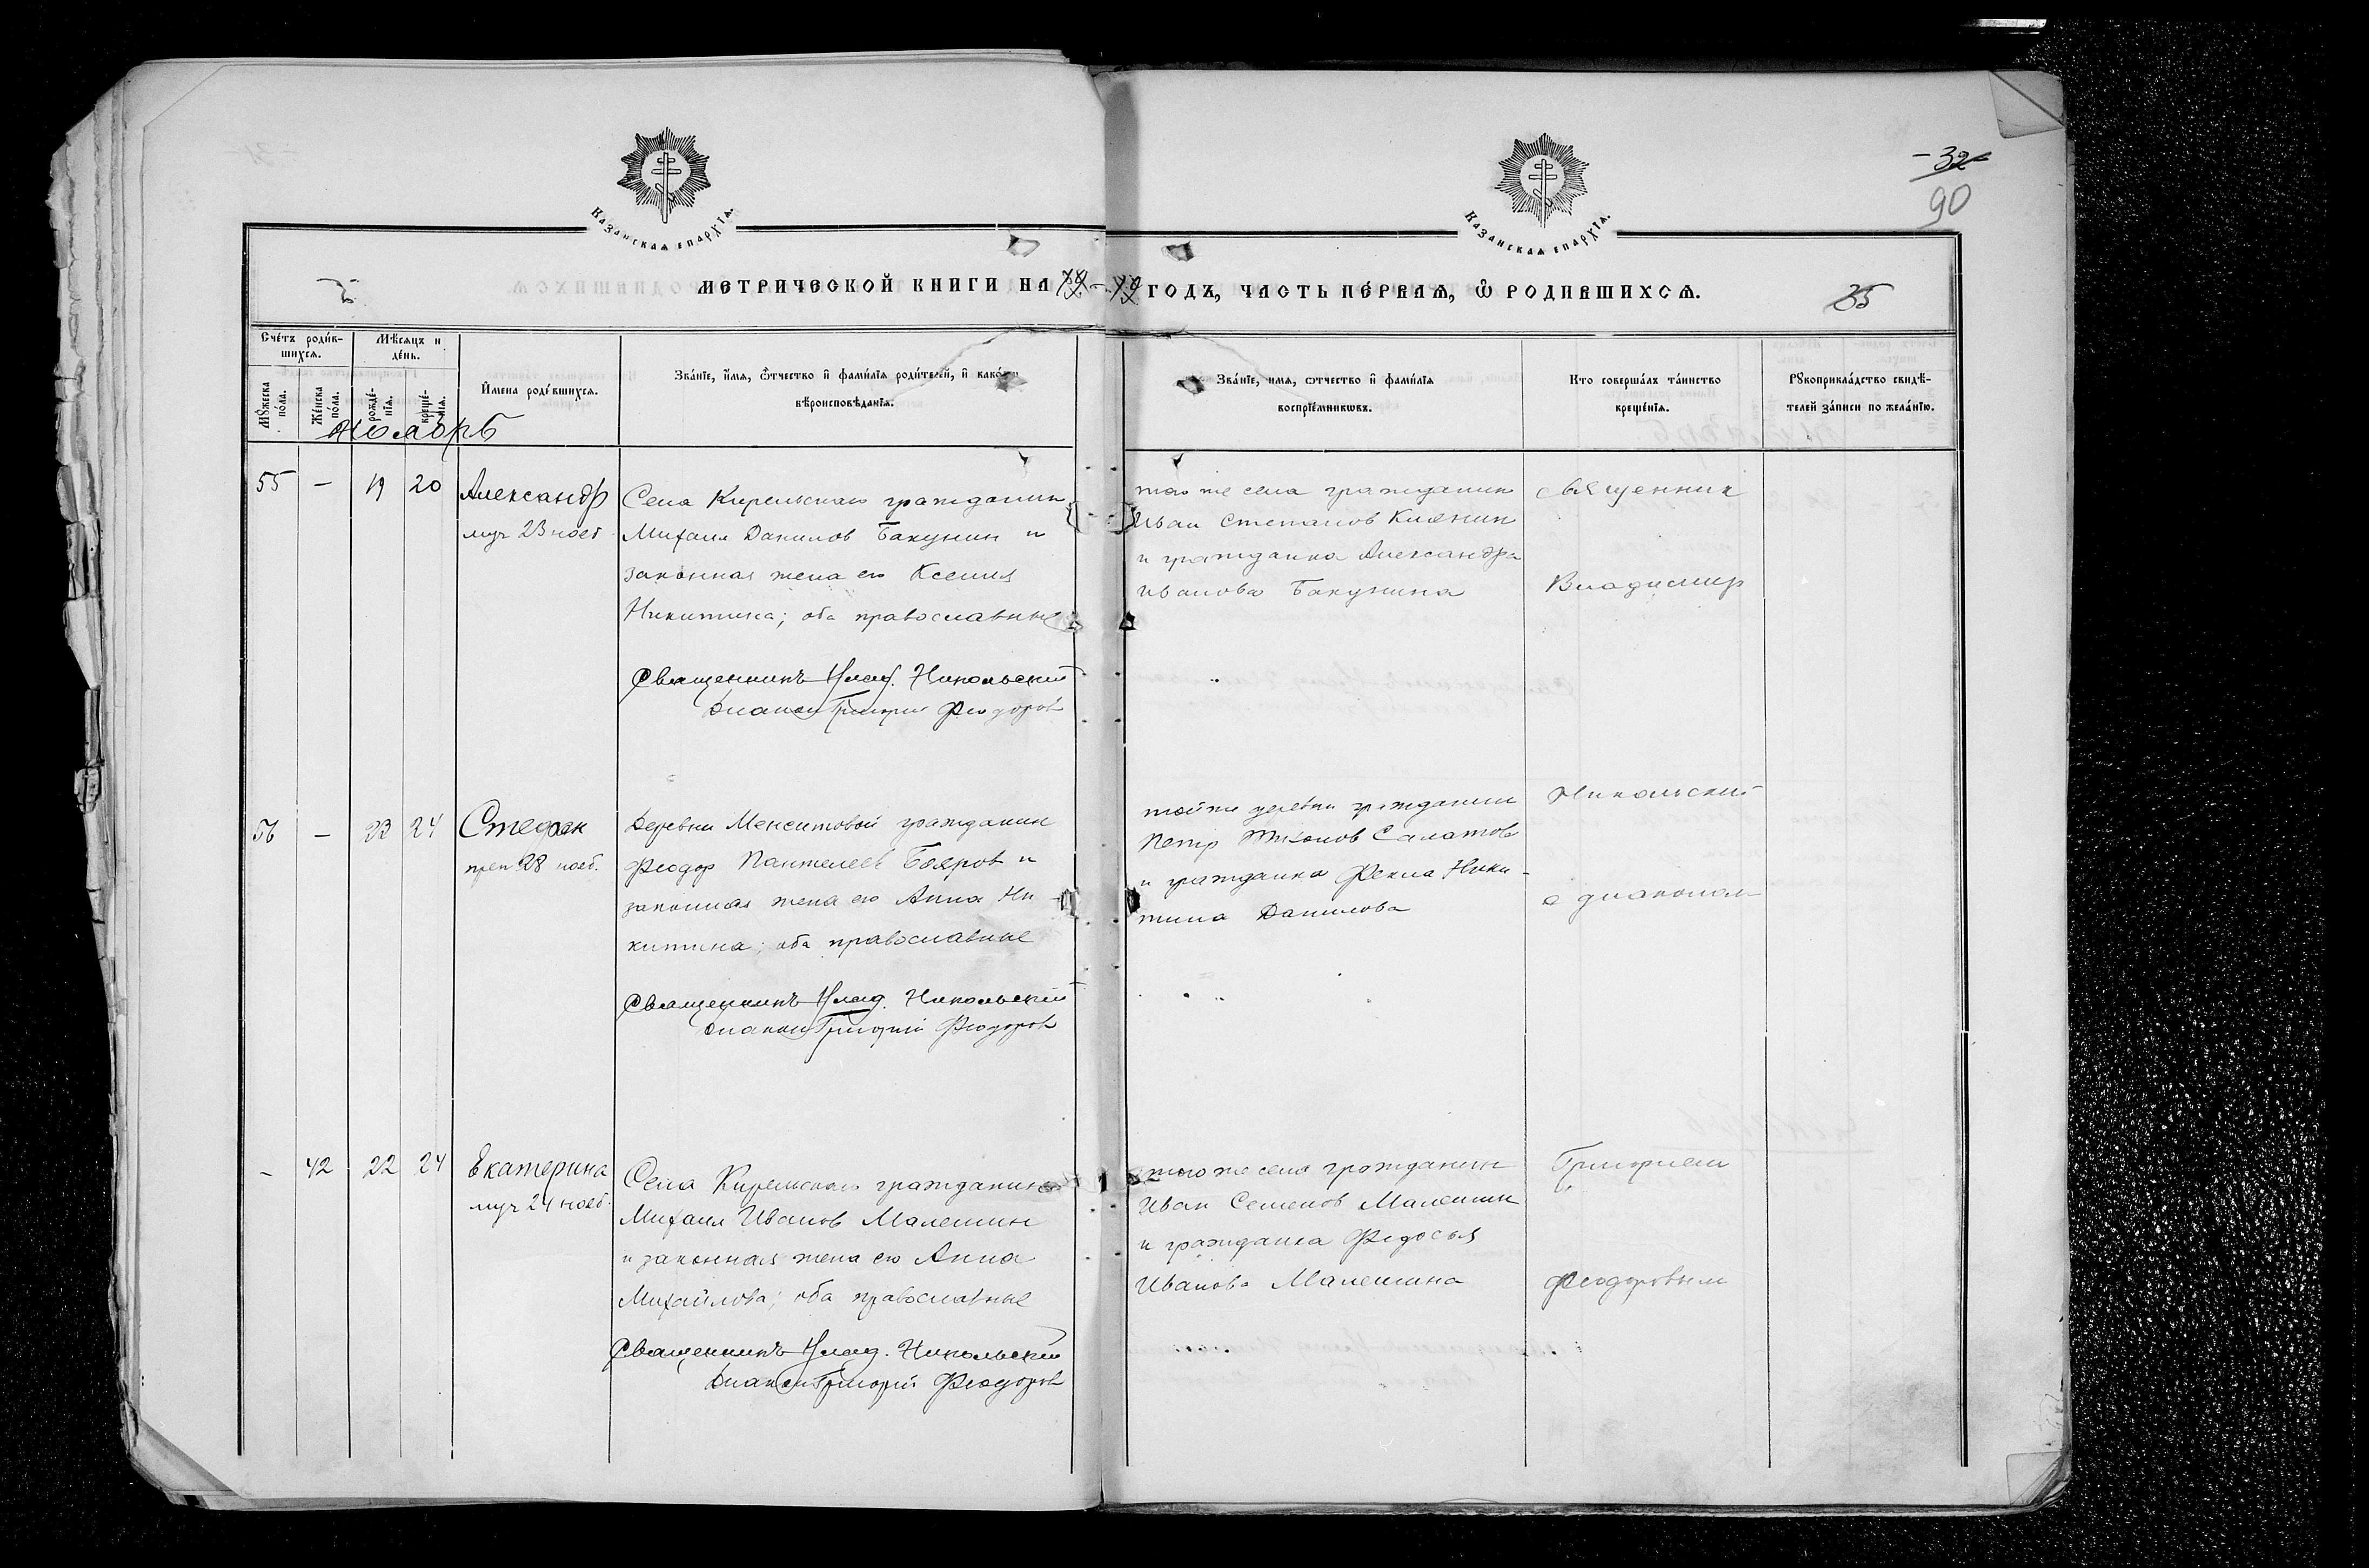 32
90
Казанская епархїя.
Казанская епархїя.
МЕТРИЧЕСКОЙ КНИГИ НА 19 - 19 ГОДЪ, ЧАСТЬ ПЕ́РВАЯ, Ѽ РОДИВШИХСЯ.
35
Сче́тъ роди́в-
шихся.
Мѣ́сяцъ и
де́нь.
Мꙋ́жеска
по́ла.
Же́нска
по́ла.
рожде́-
нїя.
креще́-
нїя.
И҆мена роди́вшихся.
Зва́нїе, и҆́мя, ѻ҆́тчество и҆ фами́лїя роди́телей, и҆ како́гѡ
вѣроисповѣ́данїя.
Зва́нїе, имя, ѻтчество и҆ фами́лїя
воспрїе́мниковъ.
Кто соверша́лъ та́инство
креще́нїя.
Рꙋкоприкла́дство свидѣ́-
телей за́писи по жела́нїю.
Ноябрь
55 — 19 20 Александр
муч 23 нояб
Села Кирельскаго гражданин
Михаил Данилов Бакунин и
законная жена его Ксения
Никитина; оба православные
Священникъ Влад. Никольский
Диакон Григорий Феодоров
того же села гражданин
Иван Степанов Киянин
и гражданка Александра
Иванова Бакунина
священник
Владимир
56 — 23 24 Стефан
преп 28 нояб.
Деревни Менситовой гражданин
Феодор Пантелеев Бояров и
законная жена его Анна Ни-
китина; оба православные
Священникъ Влад. Никольский
Диакон Григорий Феодоров
той же деревни гражданин
Петр Тихонов Салатов
и гражданка Фекла Ники-
тина Данилова
Никольский
с диаконом
— 42 22 24 Екатерина
муч 24 нояб.
Села Кирельскаго гражданин
Михаил Иванов Малешин
и законная жена его Анна
Михайлова; оба православные
Священникъ Влад. Никольский
Диакон Григорий Феодоров
того же села гражданин
Иван Семенов Малешин
и гражданка Федосья
Иванова Малешина
Григорием
Феодоровым